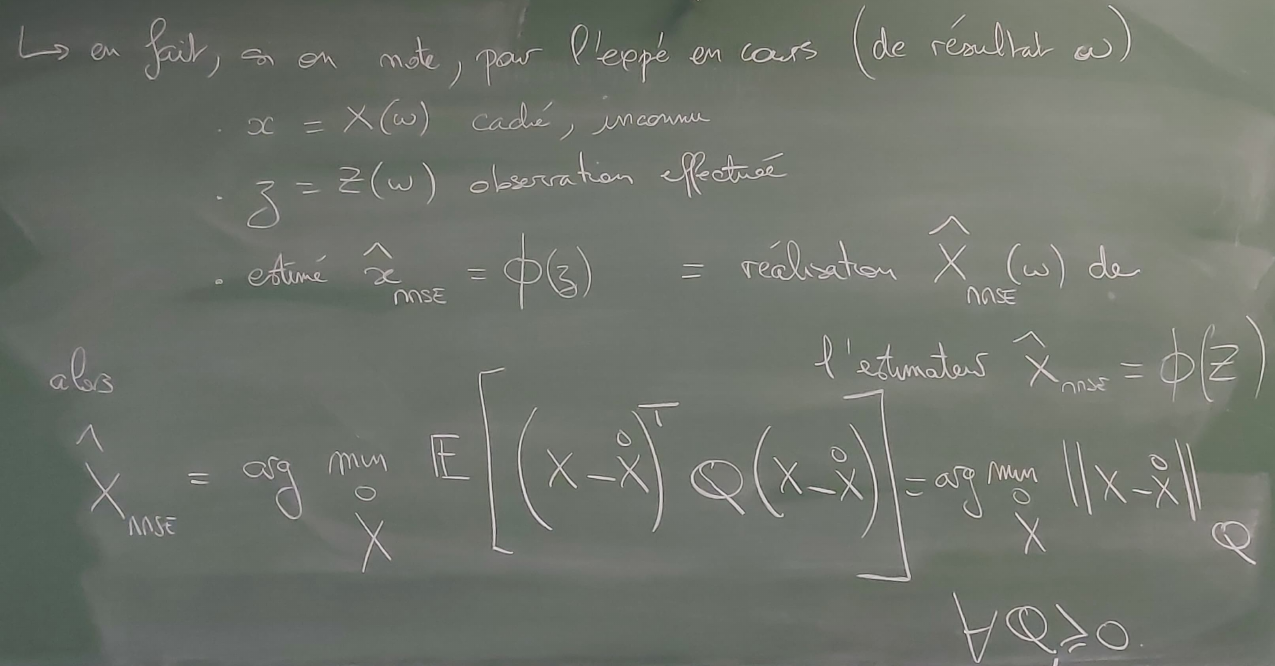 ↳ en fait, si on note, pour l'expé en cours (de résultat ω)
· x = X(ω) caché, inconnu
· z = Z(ω) observation effectuée
· estimé x̂_MMSE = ϕ(z) = réalisation X̂_MMSE (ω) de
l'estimateur X̂_MMSE = ϕ(Z)
alors
X̂_MMSE = arg min_X̊ 𝔼[(X-X̊)^T Q(X-X̊)] = arg min_X̊ ||X-X̊||_Q
∀Q≥0.